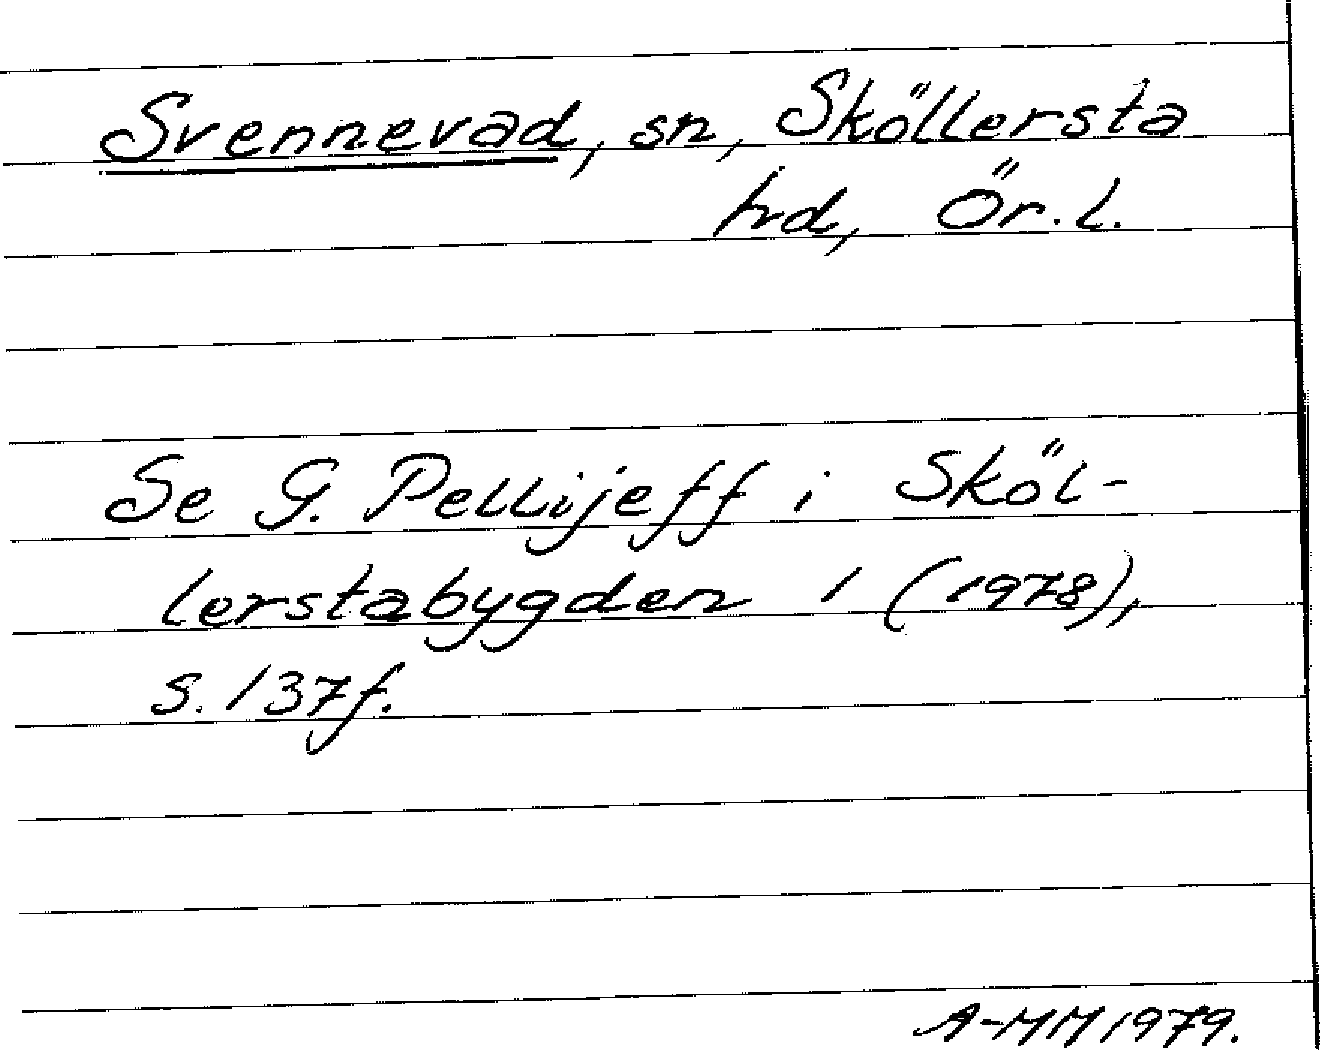 Svennevad, sn, Sköllersta
hd, Ör. l.
Se G. Pellijeff i Sköl-
lerstabygden 1 (1978),
s. 137 f.
A-MM 1979.